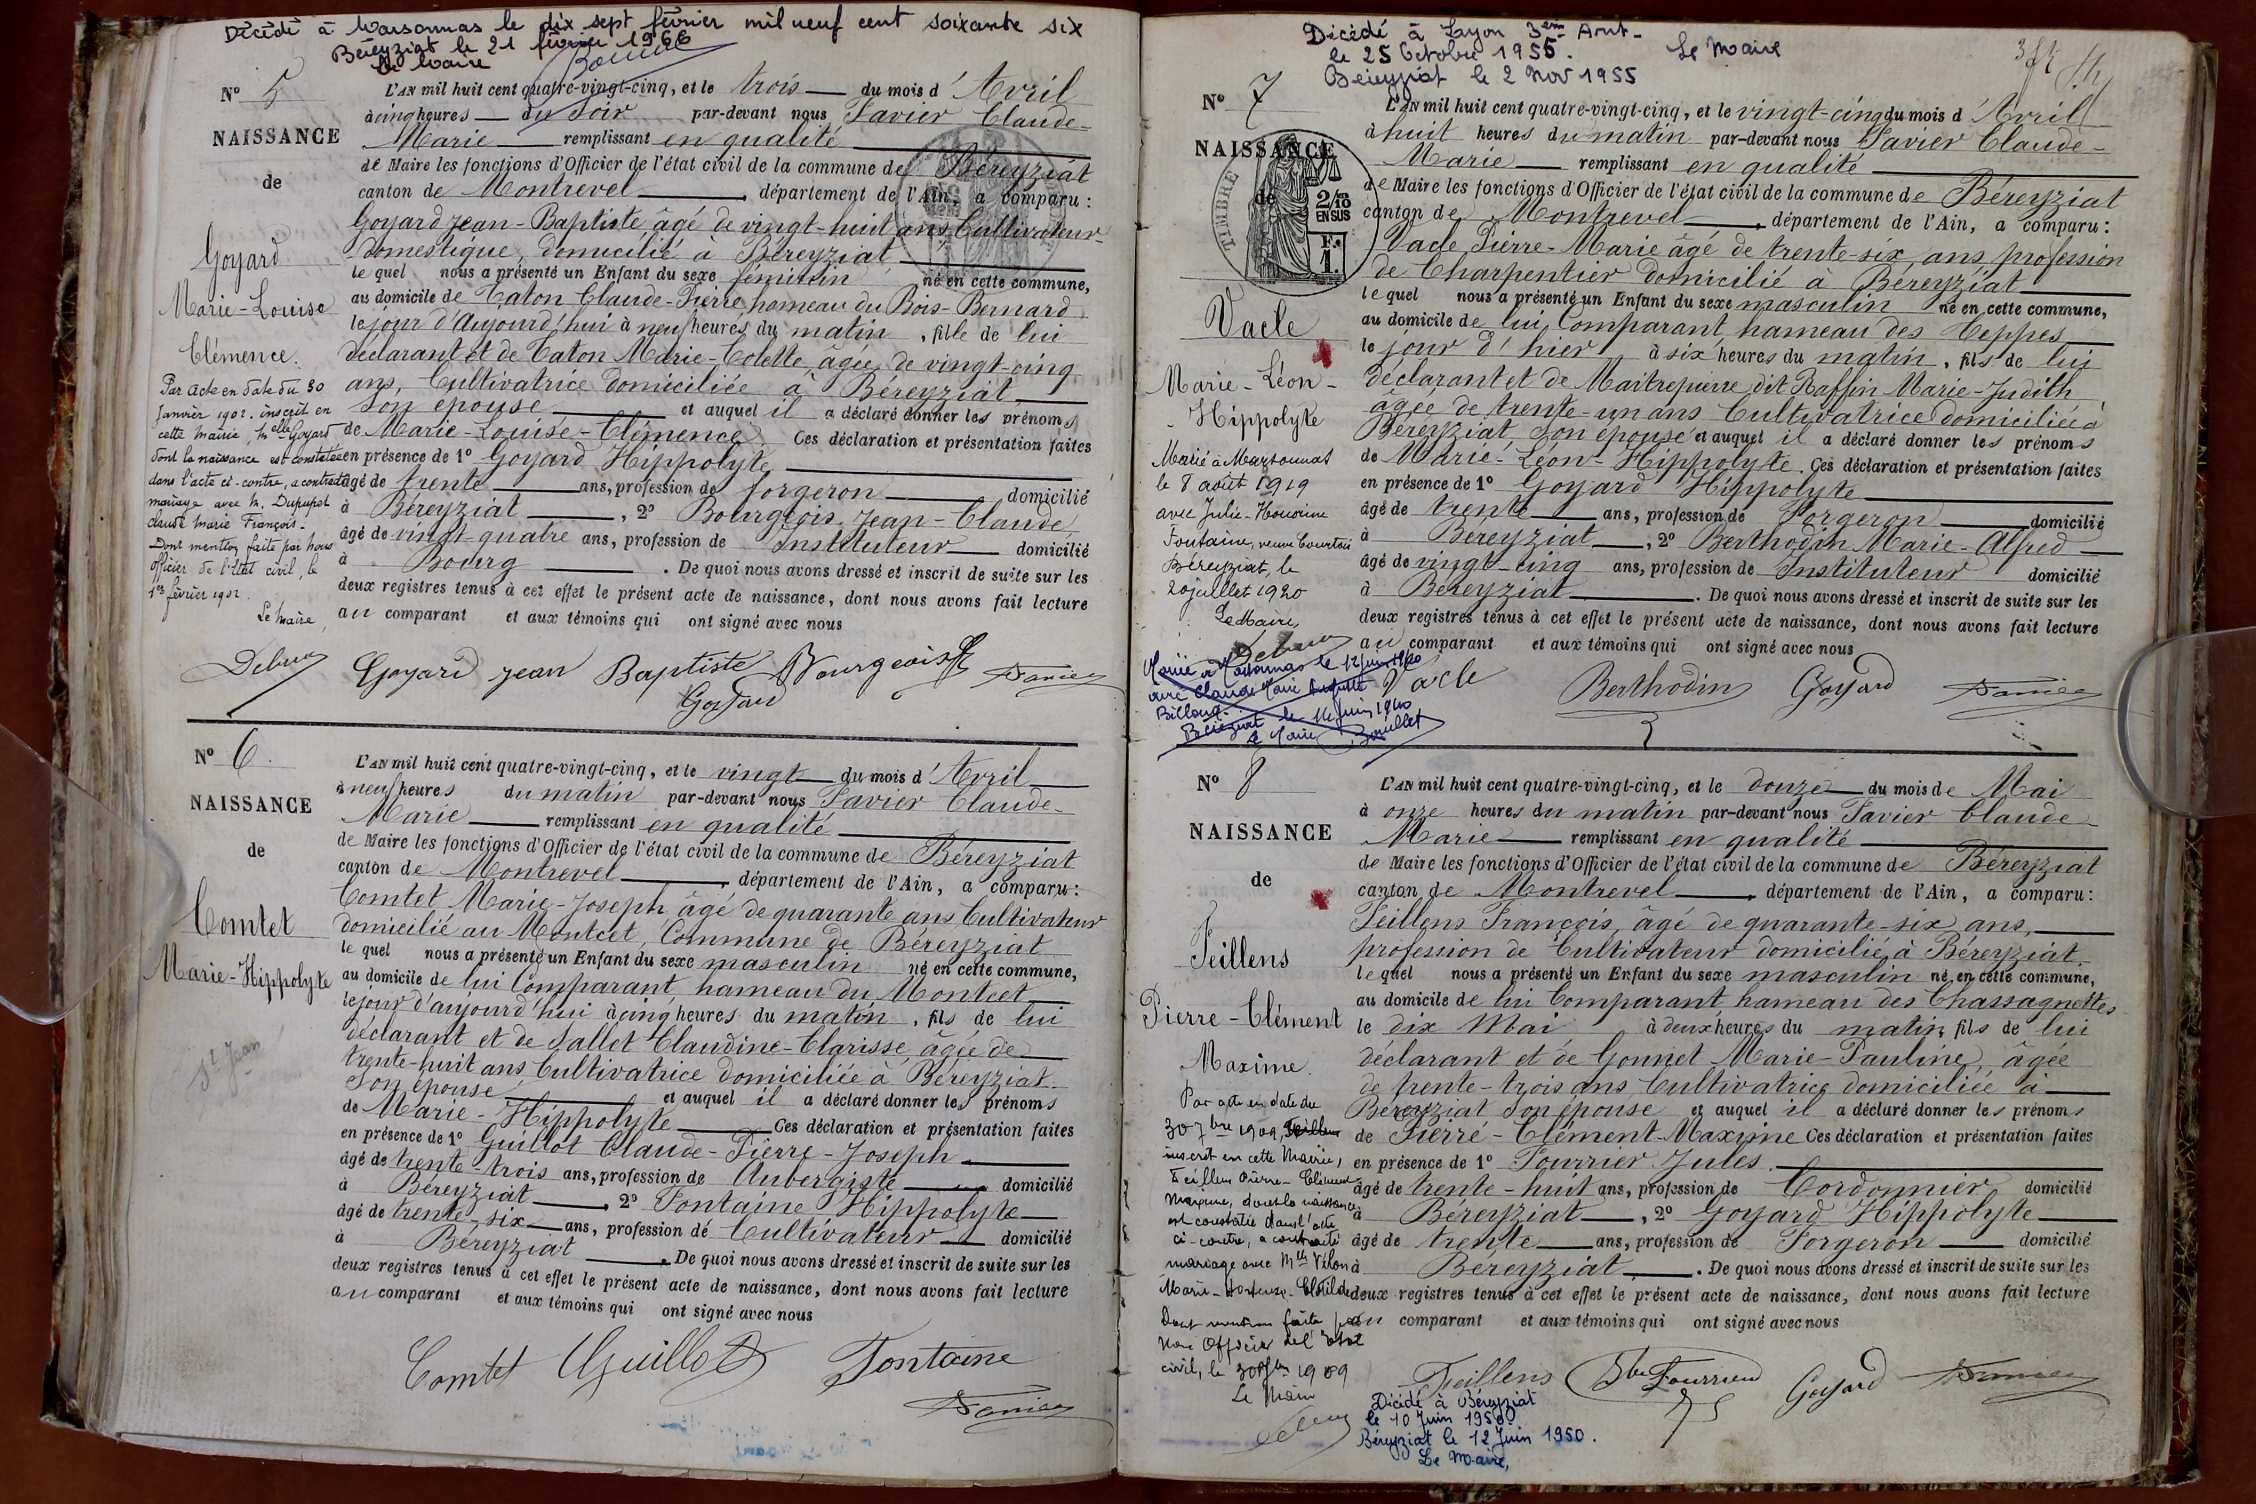 Décédé à Marsonnas le dix sept février mil neuf cent soixante six
Béréyziat le 21 février 1966
Le Maire
N° 5
NAISSANCE
de
Goyard
Marie-Louise
Clémence.
Par acte en date du 30
Janvier 1902. inscrit en
cette mairie, Melle Goyard
dont la naissance est constatée
dans l'acte ci-contre, a contracté
mariage avec M. Dupupet
Claude Marie François.
Dont mention faite par nous
officier de l'état civil, le
1er février 1902.
Le Maire,
L'AN mil huit cent quatre-vingt-cinq, et le trois du mois d'Avril
à cinq heures du soir par-devant nous Savier Claude-
Marie remplissant en qualité
de Maire les fonctions d'Officier de l'état civil de la commune de Béreyziat
canton de Montrevel, département de l'Ain, a comparu :
Goyard Jean-Baptiste âgé de vingt-huit ans, Cultivateur-
Domestique, domicilié à Béreyziat,
le quel nous a présenté un Enfant du sexe féminin né en cette commune,
au domicile de Caton Claude-Pierre, hameau du Bois-Bernard
le jour d'Aujourd'hui à neuf heures du matin, fille de lui
déclarant et de Caton Marie-Colette, âgée de vingt-cinq
ans, Cultivatrice domiciliée à Béreyziat
son épouse et auquel il a déclaré donner les prénoms
de Marie-Louise-Clémence. Ces déclaration et présentation faites
en présence de 1° Goyard Hippolyte,
âgé de trente ans, profession de forgeron domicilié
à Béreyziat, 2° Bourgeois Jean-Claude,
âgé de vingt-quatre ans, profession de Instituteur domicilié
à Bourg. De quoi nous avons dressé et inscrit de suite sur les
deux registres tenus à cet effet le présent acte de naissance, dont nous avons fait lecture
au comparant et aux témoins qui ont signé avec nous
Goyard Jean Baptiste Bourgeois
Goyard
N° 6.
NAISSANCE
de
Comtet
Marie-Hippolyte
St Jean
L'AN mil huit cent quatre-vingt-cinq, et le vingt du mois d'Avril
à neuf heures du matin par-devant nous Savier Claude-
Marie remplissant en qualité
de Maire les fonctions d'Officier de l'état civil de la commune de Béreyziat
canton de Montrevel, département de l'Ain, a comparu :
Comtet Marie-Joseph âgé de quarante ans Cultivateur
domicilié au Montcet, Commune de Béreyziat
le quel nous a présenté un Enfant du sexe masculin né en cette commune,
au domicile de lui Comparant, hameau du Montcet
le jour d'aujourd'hui à cinq heures du matin, fils de lui
déclarant et de Sallet Claudine-Clarisse, âgée de
trente-huit ans, Cultivatrice domiciliée à Béreyziat
son épouse et auquel il a déclaré donner les prénoms
de Marie-Hippolyte Ces déclaration et présentation faites
en présence de 1° Guillot Claude-Pierre-Joseph
âgé de trente-trois ans, profession de Aubergiste domicilié
à Béreyziat, 2° Fontaine Hippolyte
âgé de trente-six ans, profession de Cultivateur domicilié
à Béreyziat. De quoi nous avons dressé et inscrit de suite sur les
deux registres tenus à cet effet le présent acte de naissance, dont nous avons fait lecture
au comparant et aux témoins qui ont signé avec nous
Comtet Guillot Fontaine
Décédé à Lyon 3em Arrt-
le 25 Octobre 1955. Le Maire
Béreyziat le 2 Nov 1955
N° 7
NAISSANCE
de
TIMBRE
2/10
EN SUS
F. 1.
Vacle
Marie-Léon-
Hippolyte
Marié à Marsonnas
le 8 août 1919
avec Julie-Honorine
Fontaine, veuve Courtois
Béreyziat, le
20 juillet 1920
Le Maire,
Marié à Marsonnas le 12 juin 1940
avec Claude Marie
Billoud.
Béréziat le 14 juin 1940
Le Maire
L'AN mil huit cent quatre-vingt-cinq, et le vingt-cinq du mois d'Avril
à huit heures du matin par-devant nous Savier Claude-
Marie remplissant en qualité
de Maire les fonctions d'Officier de l'état civil de la commune de Béreyziat
canton de Montrevel, département de l'Ain, a comparu :
Vacle Pierre-Marie âgé de trente-six ans, profession
de Charpentier domicilié à Béreyziat
le quel nous a présenté un Enfant du sexe masculin né en cette commune,
au domicile de lui Comparant, hameau des Teppes
le jour d'hier à six heures du matin, fils de lui
déclarant et de Maitrepierre dit Raffin Marie-Judith,
âgée de trente-un ans Cultivatrice domiciliée à
Béreyziat, son épouse et auquel il a déclaré donner les prénoms
de Marie-Léon-Hippolyte. Ces déclaration et présentation faites
en présence de 1° Goyard Hippolyte
âgé de trente ans, profession de Forgeron domicilié
à Béreyziat, 2° Berthodin Marie-Alfred
âgé de vingt-cinq ans, profession de Instituteur domicilié
à Béreyziat. De quoi nous avons dressé et inscrit de suite sur les
deux registres tenus à cet effet le présent acte de naissance, dont nous avons fait lecture
au comparant et aux témoins qui ont signé avec nous
Vacle Berthodin Goyard
N° 8
NAISSANCE
de
Feillens
Pierre-Clément
Maxime.
Par acte en date du
30 7bre 1909,
inscrit en cette Mairie,
Feillens Pierre-Clément
Maxime, dont la naissance
est constatée dans l'acte
ci-contre, a contracté
mariage avec Mlle Vélon
Marie-Hortense-Clotilde
Dont mention faite par
Nous Officier de l'Etat
civil, le 30 7bre 1909
Le Maire
L'AN mil huit cent quatre-vingt-cinq, et le douze du mois de Mai
à onze heures du matin par-devant nous Savier Claude-
Marie remplissant en qualité
de Maire les fonctions d'Officier de l'état civil de la commune de Béreyziat
canton de Montrevel, département de l'Ain, a comparu :
Feillens François, âgé de quarante-six ans,
profession de Cultivateur domicilié à Béreyziat
le quel nous a présenté un Enfant du sexe masculin né en cette commune,
au domicile de lui Comparant, hameau des Chassagnettes
le dix Mai à deux heures du matin, fils de lui
déclarant et de Gonnet Marie-Pauline, âgée
de trente-trois ans, Cultivatrice domiciliée à
Béreyziat son épouse et auquel il a déclaré donner les prénoms
de Pierre-Clément-Maxime Ces déclaration et présentation faites
en présence de 1° Fourrier Jules.
âgé de trente-huit ans, profession de Cordonnier domicilié
à Béreyziat, 2° Goyard Hippolyte
âgé de trente ans, profession de Forgeron domicilié
à Béreyziat. De quoi nous avons dressé et inscrit de suite sur les
deux registres tenus à cet effet le présent acte de naissance, dont nous avons fait lecture
au comparant et aux témoins qui ont signé avec nous
Feillens Fourrier Goyard
Décédé à Béreyziat
le 10 Juin 1950
Béreyziat le 12 Juin 1950.
Le Maire,